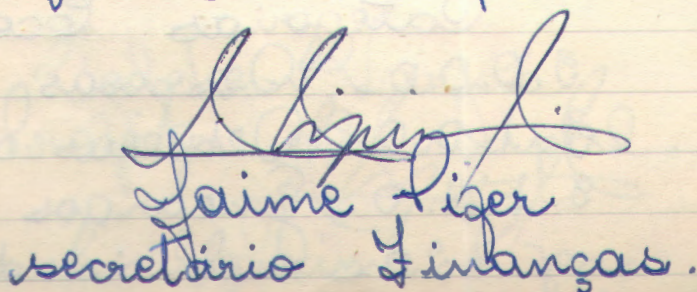 Jaime Pizer
secretário Finanças.